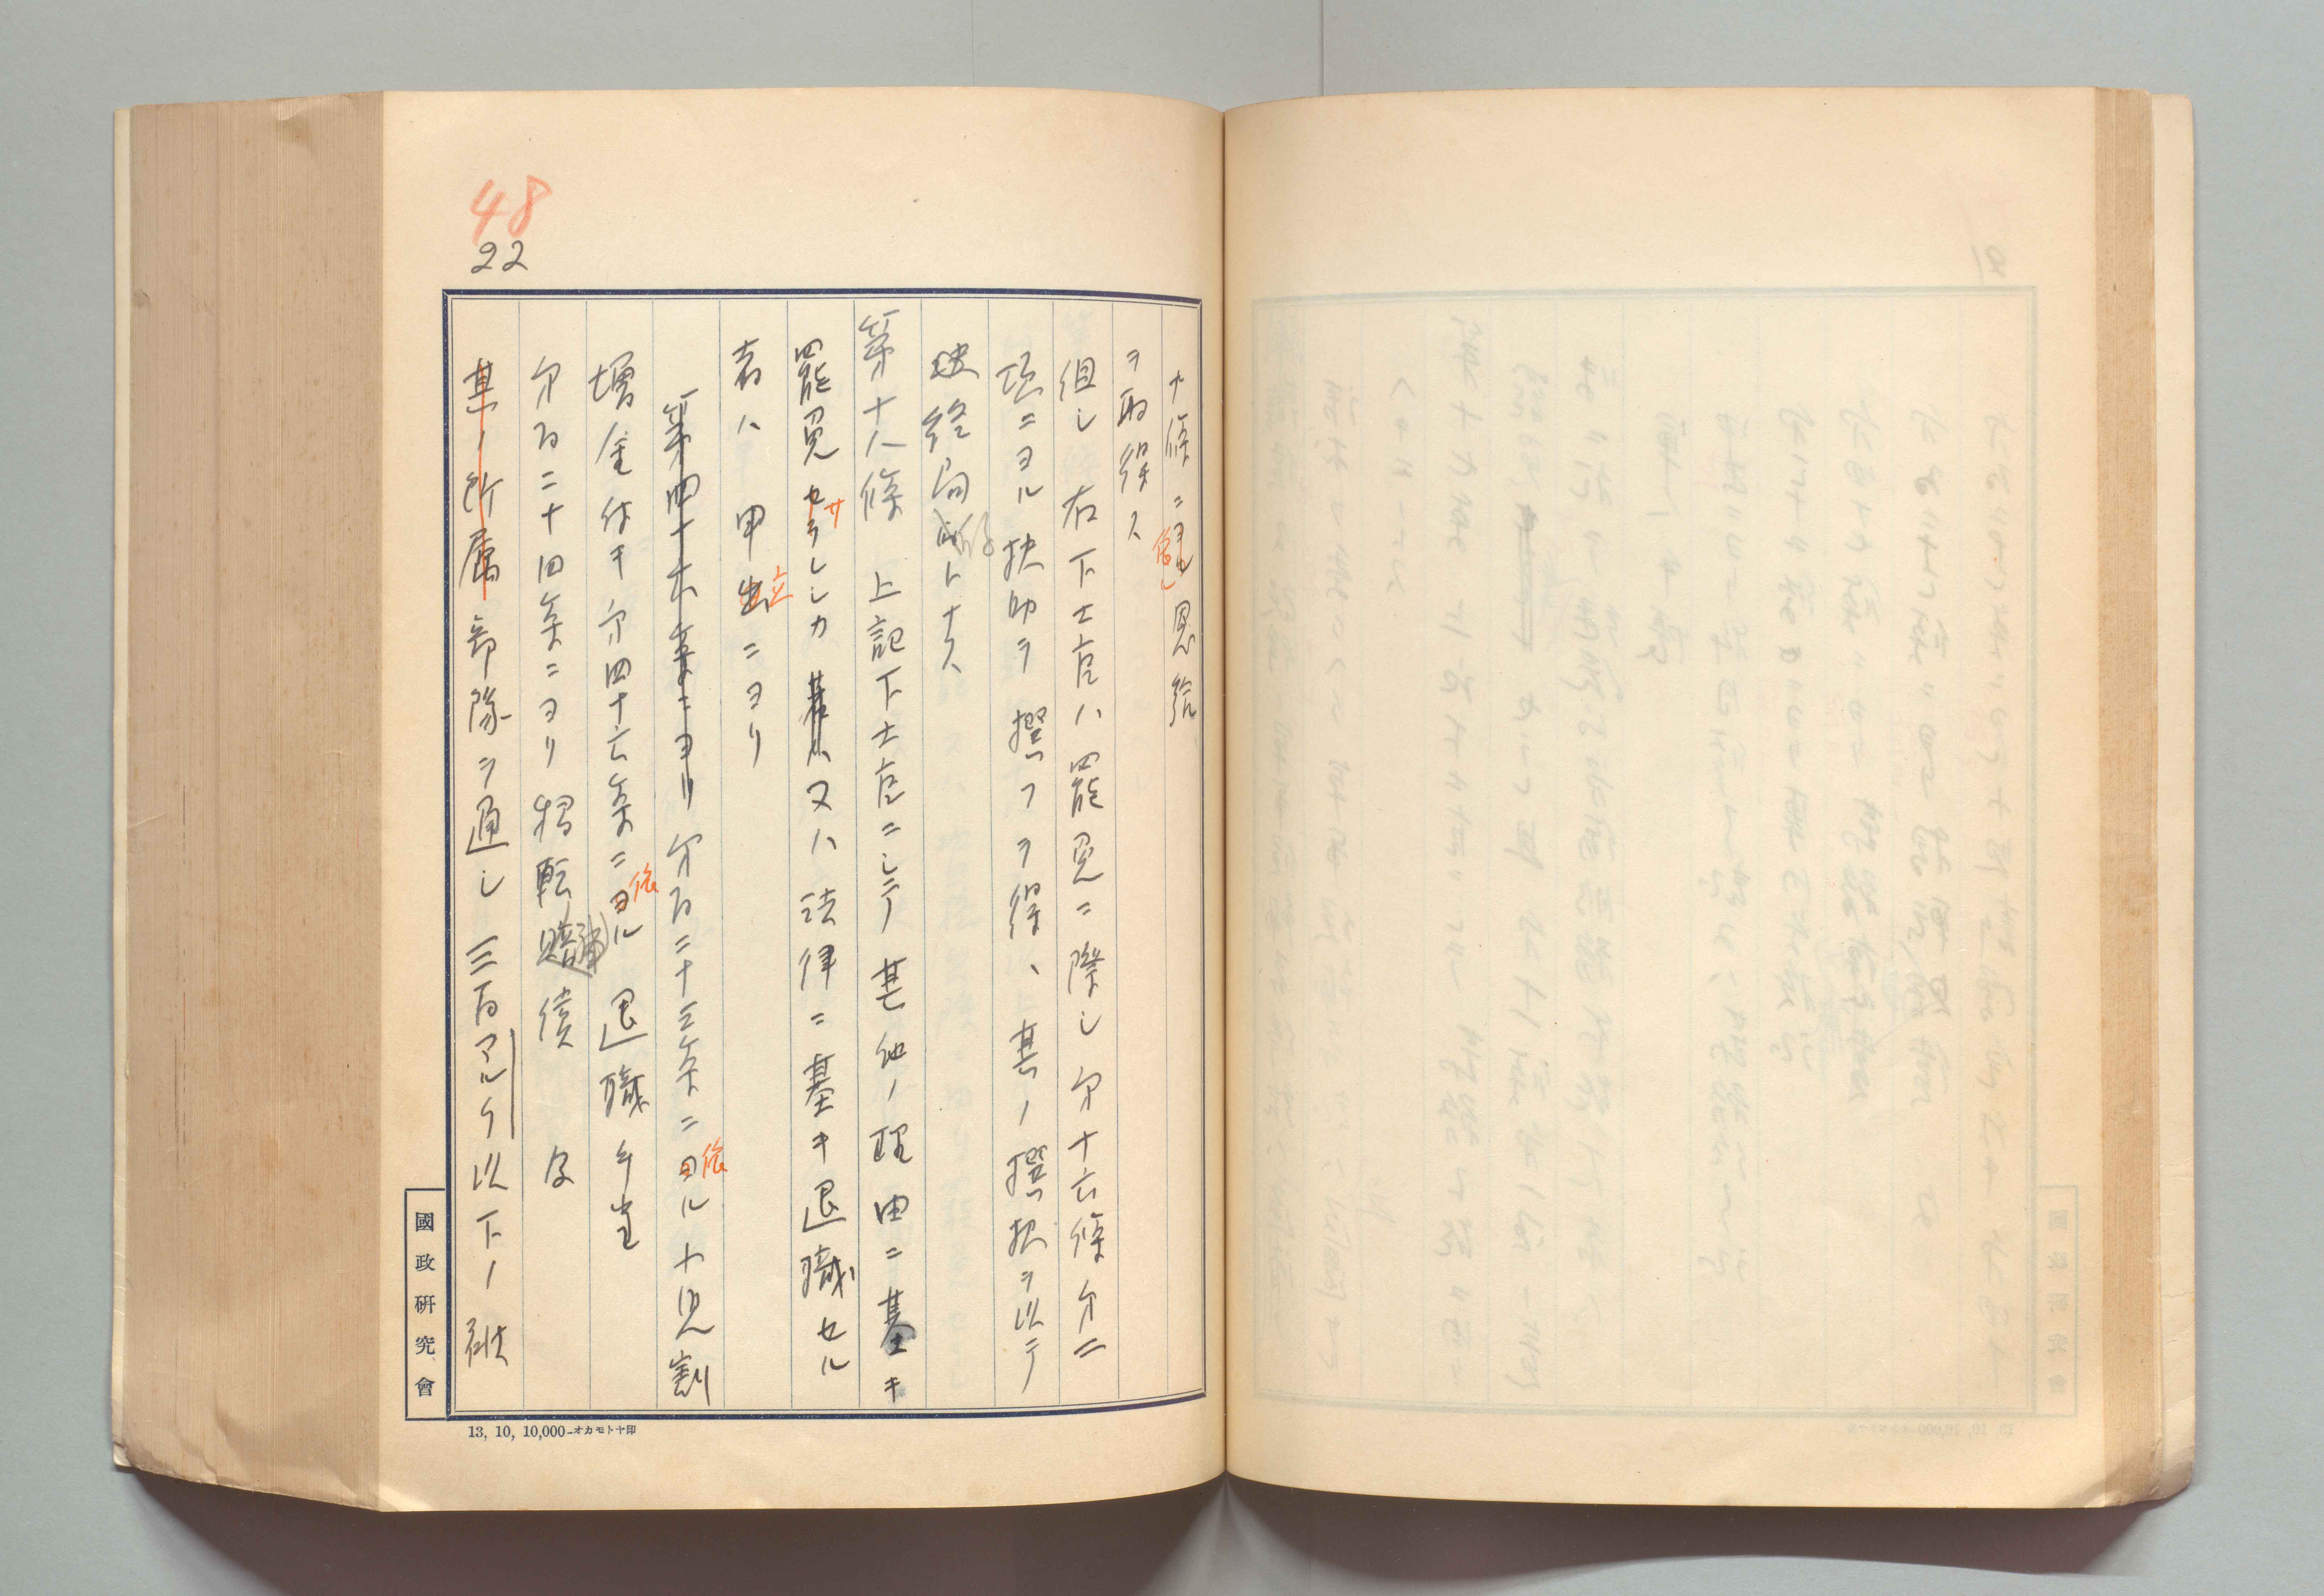 48
22
十條ニヨル依恩給
ヲ取得ス
但シ右下士官ハ罷免ニ際シ第十六條第二
項ニヨル扶助ヲ撰フヲ得、其ノ撰択ヲ以テ
終局的トナス
第十八條 上記下士官ニシテ其他ノ理由ニ基キ
罷免セサラレシカ又ハ法律ニ基キ退職セル
者ハ申出立ニヨリ
第四十六章ニヨリ第百二十三条ニヨ依ル十児割
増金付キ第四十六条ニヨ依ル退職手当
第百二十四条ニヨリ移転賠補償及
其ノ所属部隊ヲ通シ三百マルク以下ノ
國政研究會
13, 10, 10,000-オカモトヤ印